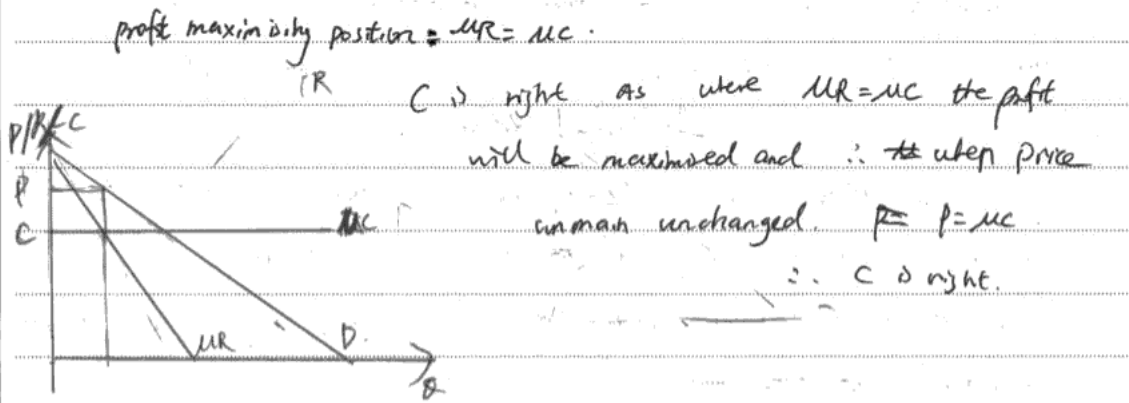 profit maximising position : MR = MC .
R
C is right As where MR = MC the profit
P/R/C
will be maximised and ∴ when price
P
unchanged. P = MC
C
MC
∴ C is right.
MR
D.
Q